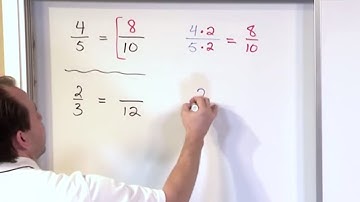 4/5 = 8/10
4•2/5•2 = 8/10
2/3 = __/12
2